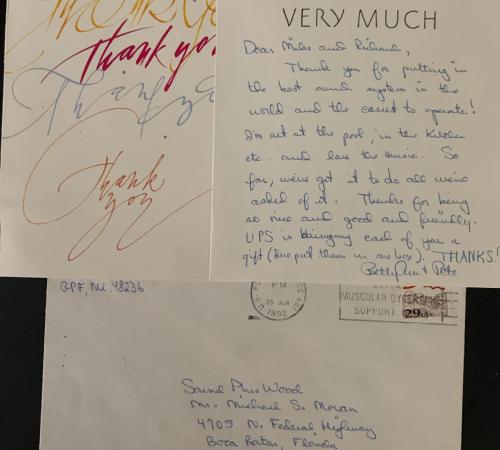 Thank you
Thank you
Thank
you
VERY MUCH
Dear Mike and Richard,
Thank you for putting in
the best sound system in the
world and the easiest to operate!
I'm out at the pool, in the kitchen
etc. and love the music. So
far, we've got it to do all we've
asked of it. Thanks for being
so nice and good and friendly.
UPS is bringing each of you a
gift (I've put them in one box). THANKS!
Betty Ann & Pete
GPF, MI 48236
PM
25 JUN
1992
MUSCULAR DYSTROPHY
SUPPORT
29
Sound Plus Wood
Mr. Michael S. Moran
4705 N. Federal Highway
Boca Raton, Florida